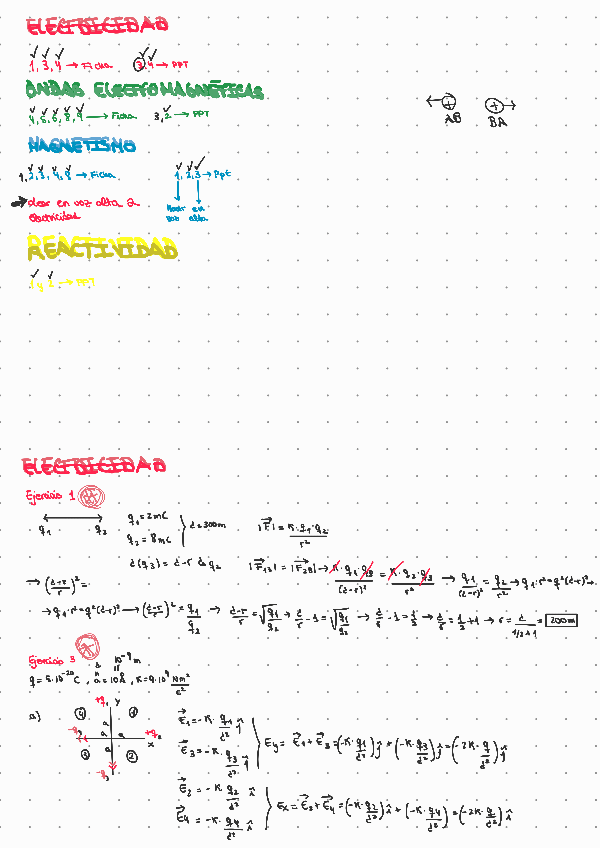 ELECTRICIDAD
1, 3, 4 → Ficha 3, 4 → PPT
ONDAS ELECTROMAGNÉTICAS
4, 5, 6, 8, 9 → Ficha 3, 2 → PPT
AB BA
MAGNETISMO
1, 2, 3, 4, 9 → Ficha 1, 2, 3 → Ppt
en voz alta 2
electricidad
en
voz alta
REACTIVIDAD
1 y 2 → PPT
ELECTRICIDAD
Ejercicio 1
q₁ q₂
q₁ = 2mC
q₂ = 8mC
d = 300m
|F| = K·q₁·q₂/r²
d(q₃) = d-r a q₂
|F₁₃| = |F₂₃| → K·q₁·q₃/(d-r)² = K·q₂·q₃/r² → q₁/(d-r)² = q₂/r² → q₁·r² = q²(d-r)² →
→ (d-r/r)² =
→ q₁·r² = q²(d-r)² → (d-r/r)² = q₁/q₂ → d-r/r = √q₁/q₂ → d/r - 1 = √q₁/q₂ → d/r - 1 = 1/2 → d/r = 1/2 + 1 → r = d/1/2+1 = 200m
Ejercicio 3
10⁻⁹m
q = 5·10⁻²⁰ C , a = 10Å , K = 9·10⁹ Nm²/C²
a)
+q y
4 1
a
-q a a +q
x
3 a 2
-q
E₁ = -K·q₁/d² ĵ
E₃ = -K·q₃/d² ĵ
Ey = E₁ + E₃ = (-K·q₁/d²)ĵ + (-K·q₃/d²)ĵ = (-2K·q/d²)ĵ
E₂ = -K·q₂/d² î
E₄ = -K·q₄/d² î
Ex = E₂ + E₄ = (-K·q₂/d²)î + (-K·q₄/d²)î = (-2K·q/d²)î